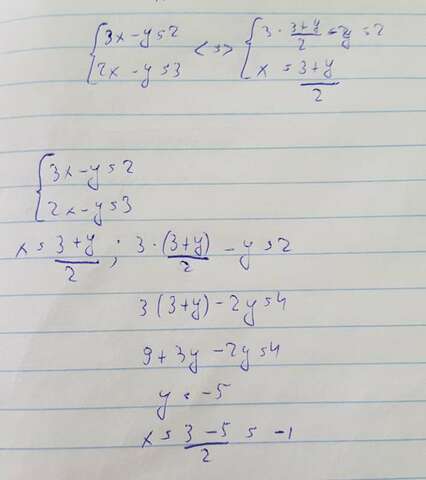 {3x-y=2 <=> {3·3+y/2-y=2
{2x-y=3 {x=3+y/2
{3x-y=2
{2x-y=3
x=3+y/2; 3·(3+y)/2-y=2
3(3+y)-2y=4
9+3y-2y=4
y=-5
x=3-5/2=-1